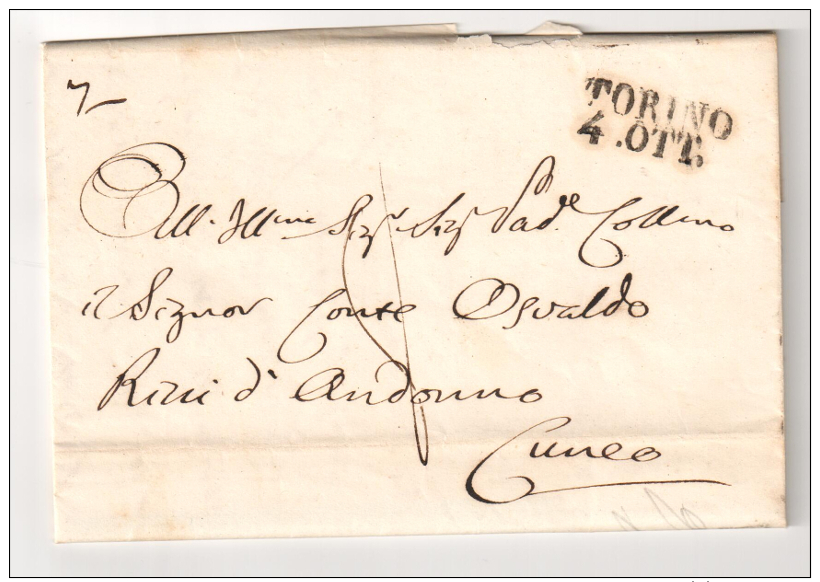 TORINO
4 .OTT.
All. Ill.mo Sig.r Sig.r Pad.e Coll.mo
il Signor Conte Osvaldo
Rini d'Andonno
Cuneo